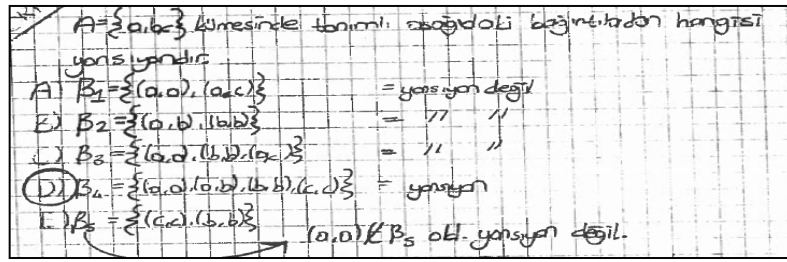 A={a,b,c} kümesinde tanımlı aşağıdaki bağıntılardan hangisi
yansıyandır.
A) β1={(a,a),(a,c)} = yansıyan değil
B) β2={(a,b),(b,b)} = " "
C) β3={(a,a),(b,b),(a,c)} = " "
D) β4={(a,a),(a,b),(b,b),(c,c)} = yansıyan
E) β5={(c,c),(b,b)}
(a,a)∉β5 old. yansıyan değil.